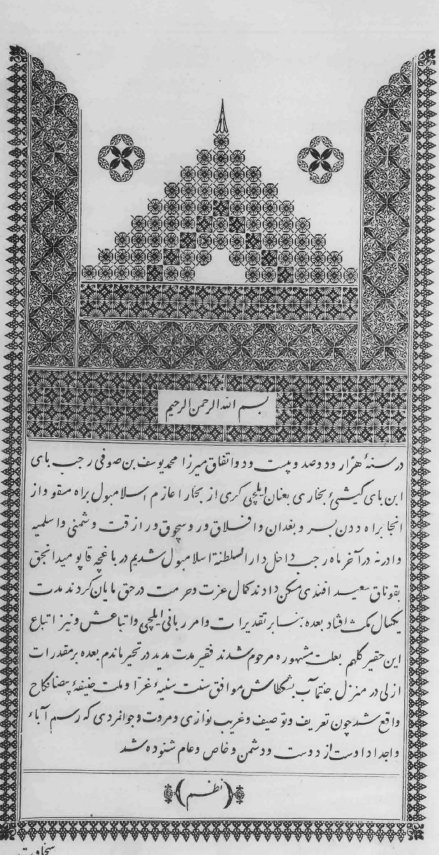 بسم الله الرحمن الرحیم
در سنهٔ هزار و دوصد و بیست و دو اتفاق میرزا محمد یوسف بن صوفی رجب بای
ابن بای کیشیٔ بخاری بعنان ایلچی کری از بخارا عازم اسلامبول براه مسقو و از
انجا براه دن بسر و بغدان و افلاق و رو سجوق و راز قت و شمنی و اسلمیه
وادرنه در آخر ماه رجب داخل دار السلطنهٔ اسلامبول شدیم در باغچه قاپو میدانجق
بقوناق سعید افندی مسکن دادند کمال عزت و حرمت در حق مایان کردند مدت
یکسال مکث افتاد بعده بنابر تقدیرات و امر ربانی ایلچی و اتباعش و نیز اتباع
این حقیر کلهم بعلت مشهوره مرحوم شدند فقیر مدت مدید در تحیر ماندم بعده بر مقدرات
ازلی در منزل جنتمآب بشکطاش موافق سنت سنیهٔ غرا و ملت حنیفهٔ بیضا نکاح
واقع شد چون تعریف و توصیف و غریب نوازی و مروت و جوانمردی که رسم آباء
و اجداد اوست از دوست و دشمن و خاص و عام شنوده شد
(نظم)
سخاوت